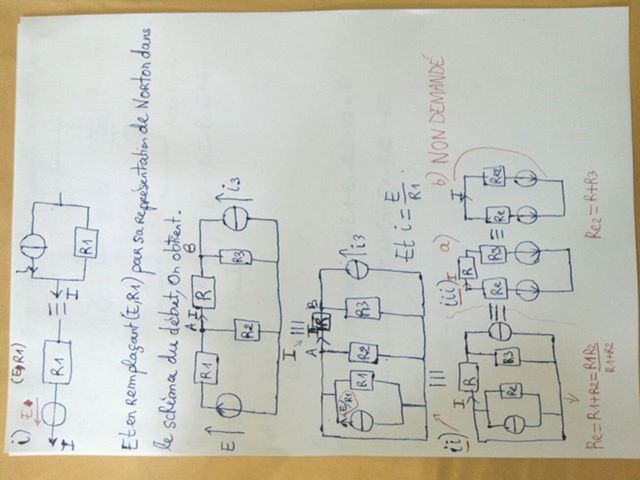 i) (E,R1)
E
I
R1
I
R1
Et en remplaçant (E,R1) par sa représentation de Norton dans
le schéma du début, On obtient.
E
R1
A
I
R
B
R2
R3
i3
I
A
R
B
E/R1
R1
R2
R3
i3
Et i = E/R1
ii)
I
R
Re
R3
Re = R1+R2 = R1R2/R1+R2
iii) a)
I
R
Re
R3
b) NON DEMANDÉ
I
Re
Re2
Re2 = R+R3